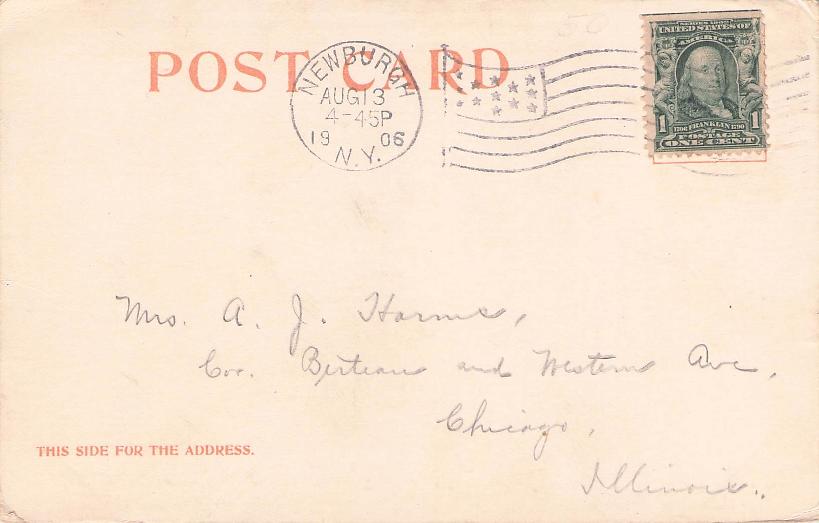 50
POST CARD
NEWBURGH
AUG 13
4-45P
1906
N.Y.
SERIES 1902
UNITED STATES OF
AMERICA
1 1
1706 FRANKLIN 1790
POSTAGE
ONE CENT
Mrs. A. J. Harms,
Cor. Berteau and Western Ave,
Chicago,
Illinois.
THIS SIDE FOR THE ADDRESS.